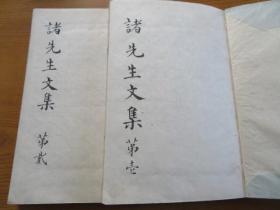 諸先生文集 第壱
諸先生文集 第貮